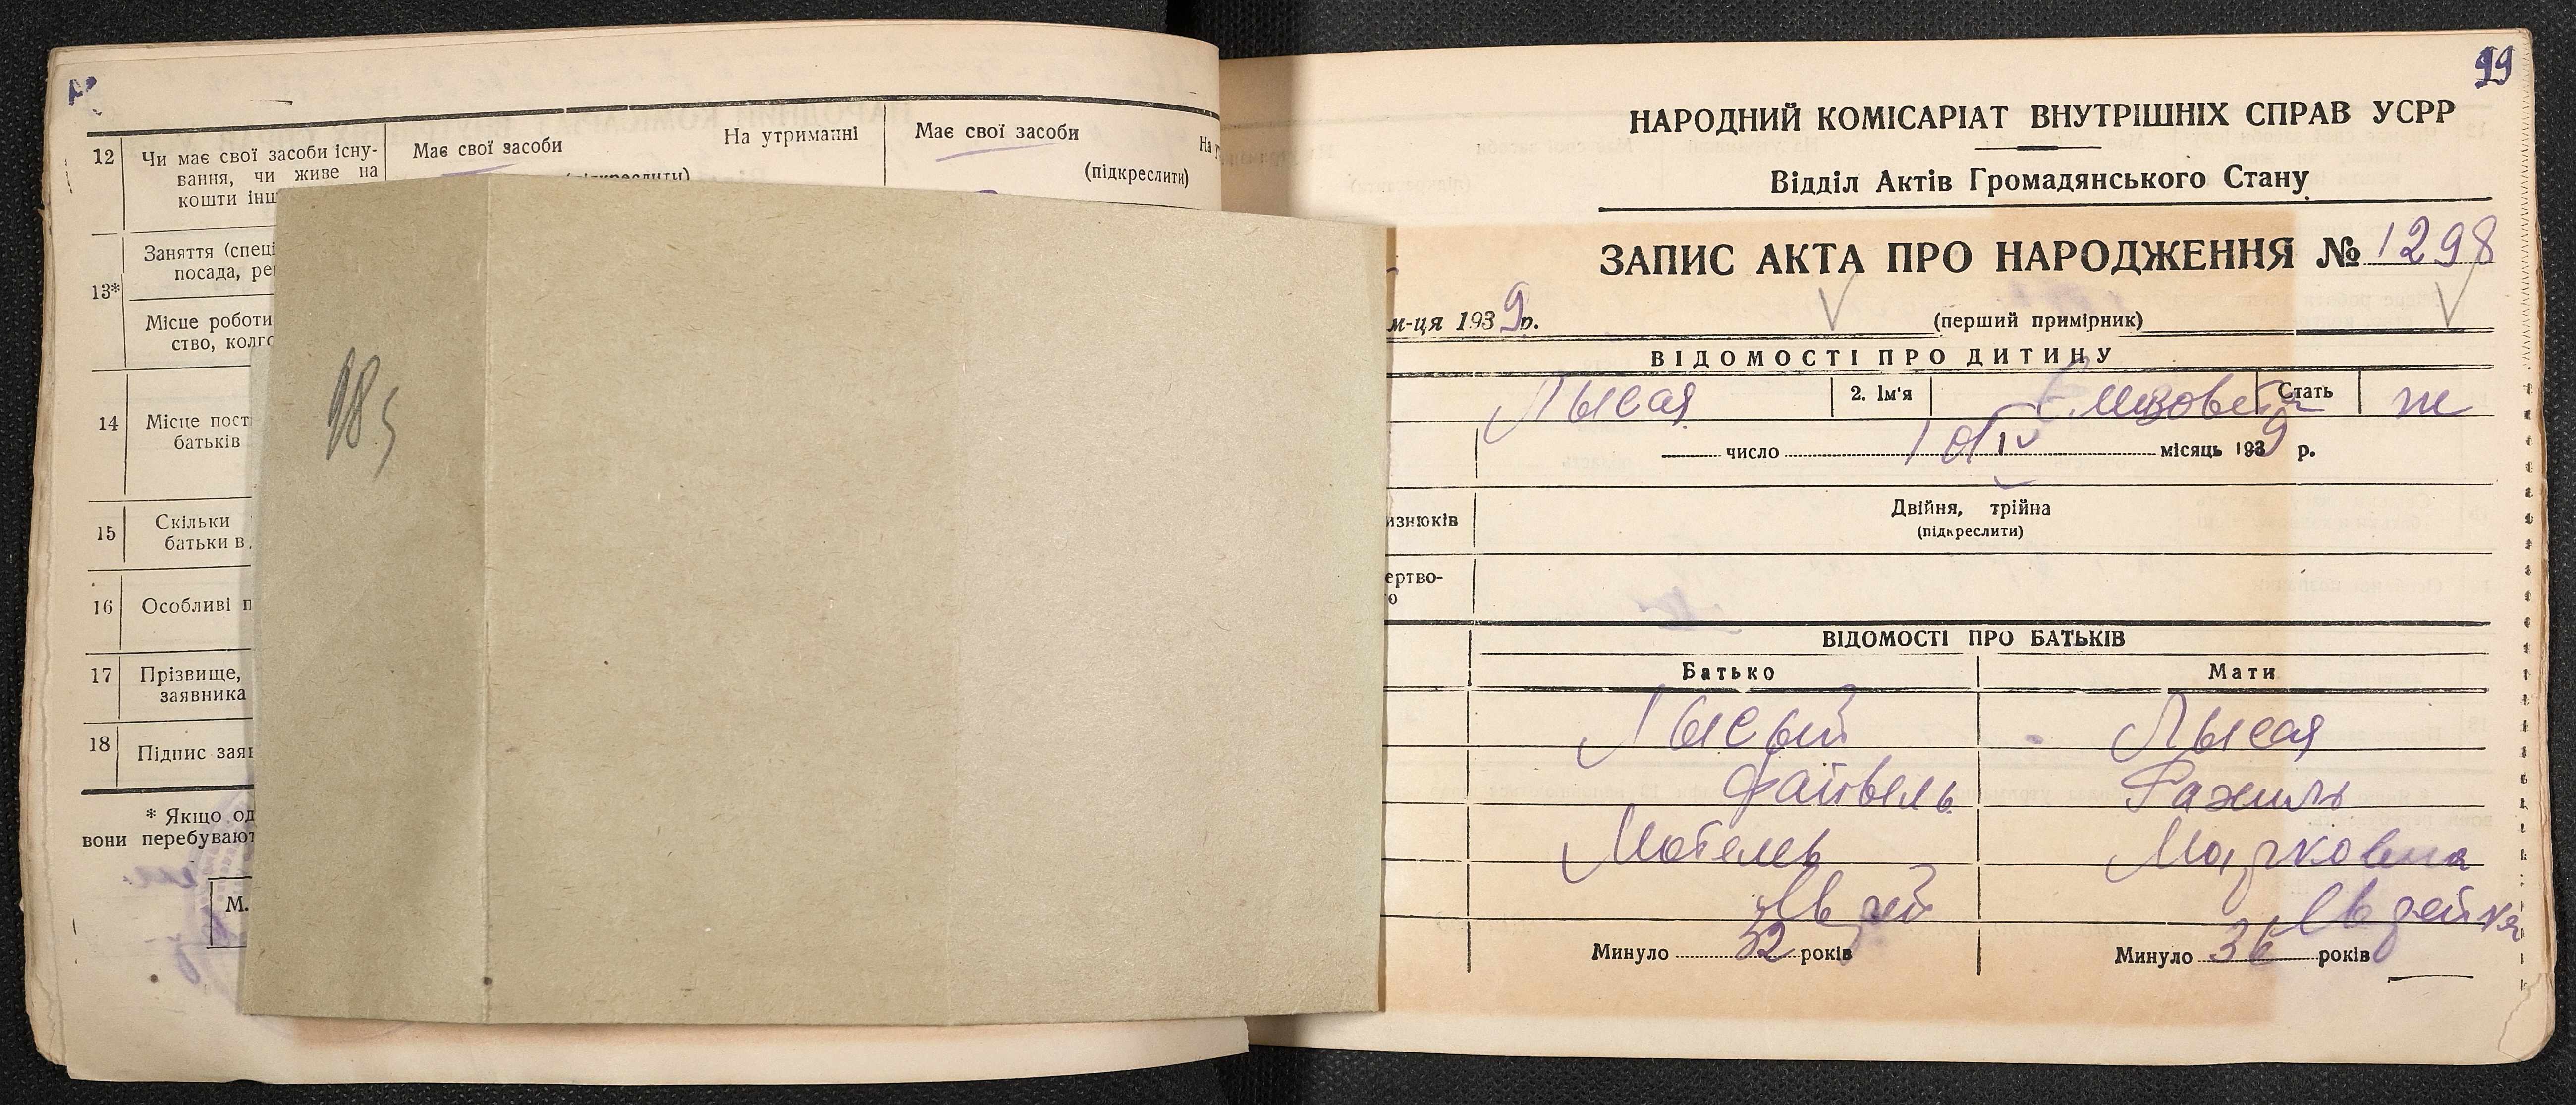 12 Чи має свої засоби існу-
вання, чи живе на
кошти інш
Має свої засоби На утриманні
(підкреслити)
Має свої засоби На у
(підкреслити)
13* Заняття (спеці
посада, ре
Місце роботи
ство, колго
14 Місце пост
батьків
15 Скільки
батьки в
16 Особливі п
17 Прізвище,
заявника
18 Підпис заяв
* Якщо од
вони перебувают
М.
99
НАРОДНИЙ КОМІСАРІАТ ВНУТРІШНІХ СПРАВ УСРР
Відділ Актів Громадянського Стану
ЗАПИС АКТА ПРО НАРОДЖЕННЯ № 1298
м-ця 1939 р. (перший примірник)
ВІДОМОСТІ ПРО ДИТИНУ
Лысая 2. Ім'я Стать ж
число 1 місяць 1939 р.
изнюків Двійня, трійна
(підкреслити)
ертво-
о
ВІДОМОСТІ ПРО БАТЬКІВ
Батько Мати
Лысый Лысая
Файвель Рахиль
Мотель Марковна
Еврей Еврейка
Минуло 32 років Минуло 36 років